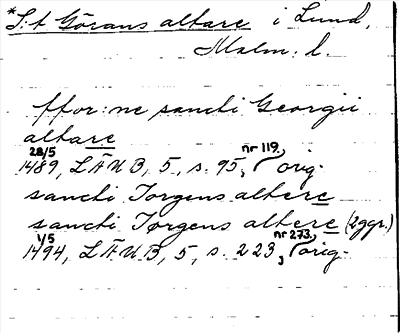 *S:t Görans altare i Lund,
Malm. l.
ffor:ne sancti Georgii
altare
28/5 1489, LÄUB, 5, s. 95, nr 119, orig.
sancti Jorgens altere
sancti Jørgens altere (2ggr.)
1/5 1494, LÄUB, 5, s. 223, nr 273, orig.